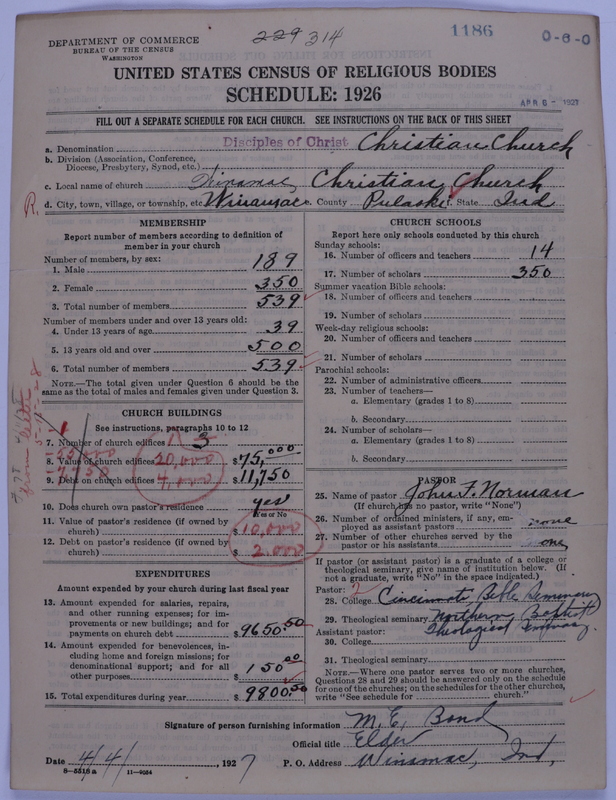 DEPARTMENT OF COMMERCE
BUREAU OF THE CENSUS
WASHINGTON
229 314
1186
0-6-0
UNITED STATES CENSUS OF RELIGIOUS BODIES
SCHEDULE: 1926
APR 6 - 1927
FILL OUT A SEPARATE SCHEDULE FOR EACH CHURCH. SEE INSTRUCTIONS ON THE BACK OF THIS SHEET
a. Denomination Disciples of Christ Christian Church
b. Division (Association, Conference,
Diocese, Presbytery, Synod, etc.)
c. Local name of church Winamac Christian Church
R. d. City, town, village, or township, etc. Winamac e. County Pulaski f. State Ind
MEMBERSHIP
Report number of members according to definition of
member in your church
Number of members, by sex:
1. Male 189
2. Female 350
3. Total number of members 539
Number of members under and over 13 years old:
4. Under 13 years of age 39
5. 13 years old and over 500
6. Total number of members 539
NOTE.—The total given under Question 6 should be the
same as the total of males and females given under Question 3.
CHURCH BUILDINGS
See instructions, paragraphs 10 to 12
7. Number of church edifices 3
8. Value of church edifices 20,000 $75,000
9. Debt on church edifices 4,000 $11,750
10. Does church own pastor's residence? yes
Yes or No
11. Value of pastor's residence (if owned by
church) $ 10,000
12. Debt on pastor's residence (if owned by
church) $ 2,000
EXPENDITURES
Amount expended by your church during last fiscal year
13. Amount expended for salaries, repairs,
and other running expenses; for im-
provements or new buildings; and for
payments on church debt $9650.50
14. Amount expended for benevolences, in-
cluding home and foreign missions; for
denominational support; and for all
other purposes $ 150.00
15. Total expenditures during year $ 9800.50
CHURCH SCHOOLS
Report here only schools conducted by this church
Sunday schools:
16. Number of officers and teachers 14
17. Number of scholars 350
Summer vacation Bible schools:
18. Number of officers and teachers
19. Number of scholars
Week-day religious schools:
20. Number of officers and teachers
21. Number of scholars
Parochial schools:
22. Number of administrative officers
23. Number of teachers—
a. Elementary (grades 1 to 8)
b. Secondary
24. Number of scholars—
a. Elementary (grades 1 to 8)
b. Secondary
PASTOR
25. Name of pastor John F. Norman
(If church has no pastor, write "None")
26. Number of ordained ministers, if any, em-
ployed as assistant pastors none
27. Number of other churches served by the
pastor or his assistants none
If pastor (or assistant pastor) is a graduate of a college or
theological seminary, give name of institution below. (If
not a graduate, write "No" in the space indicated.)
Pastor: 2
28. College Cincinnati Bible Seminary
29. Theological seminary Northern Baptist
Assistant pastor: Theological Seminary
30. College
31. Theological seminary
NOTE.—Where one pastor serves two or more churches,
Questions 28 and 29 should be answered only on the schedule
for one of the churches; on the schedules for the other churches,
write "See schedule for church."
Signature of person furnishing information M. E. Bond
Official title Elder
Date 4/4/, 1927 P. O. Address Winamac, Ind.
8-5518 a 11-9034